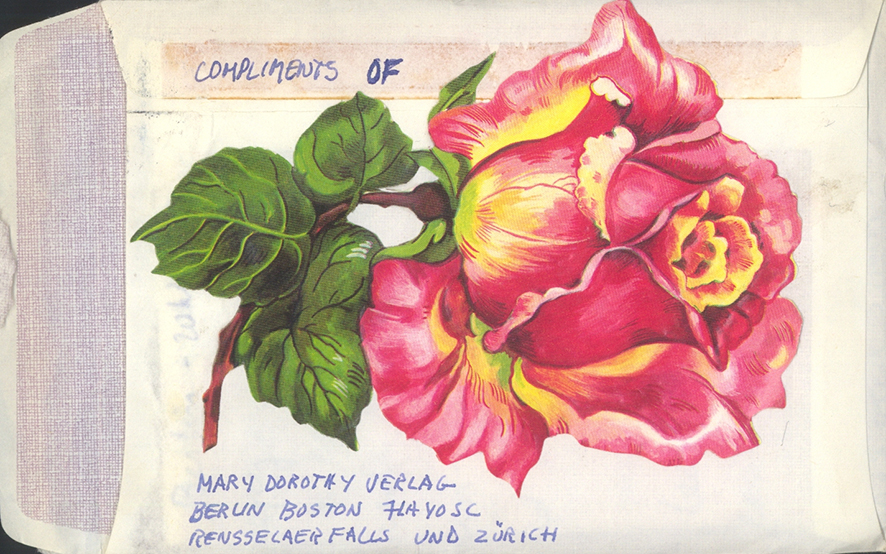 COMPLIMENTS OF
MARY DOROTHY VERLAG
BERLIN BOSTON FLAYOSC
RENSSELAER FALLS UND ZÜRICH